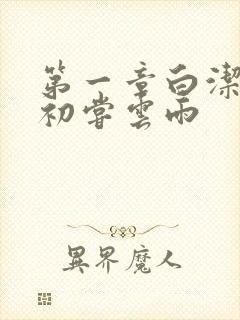 第一章白潔
初嘗雲雨
異界魔人